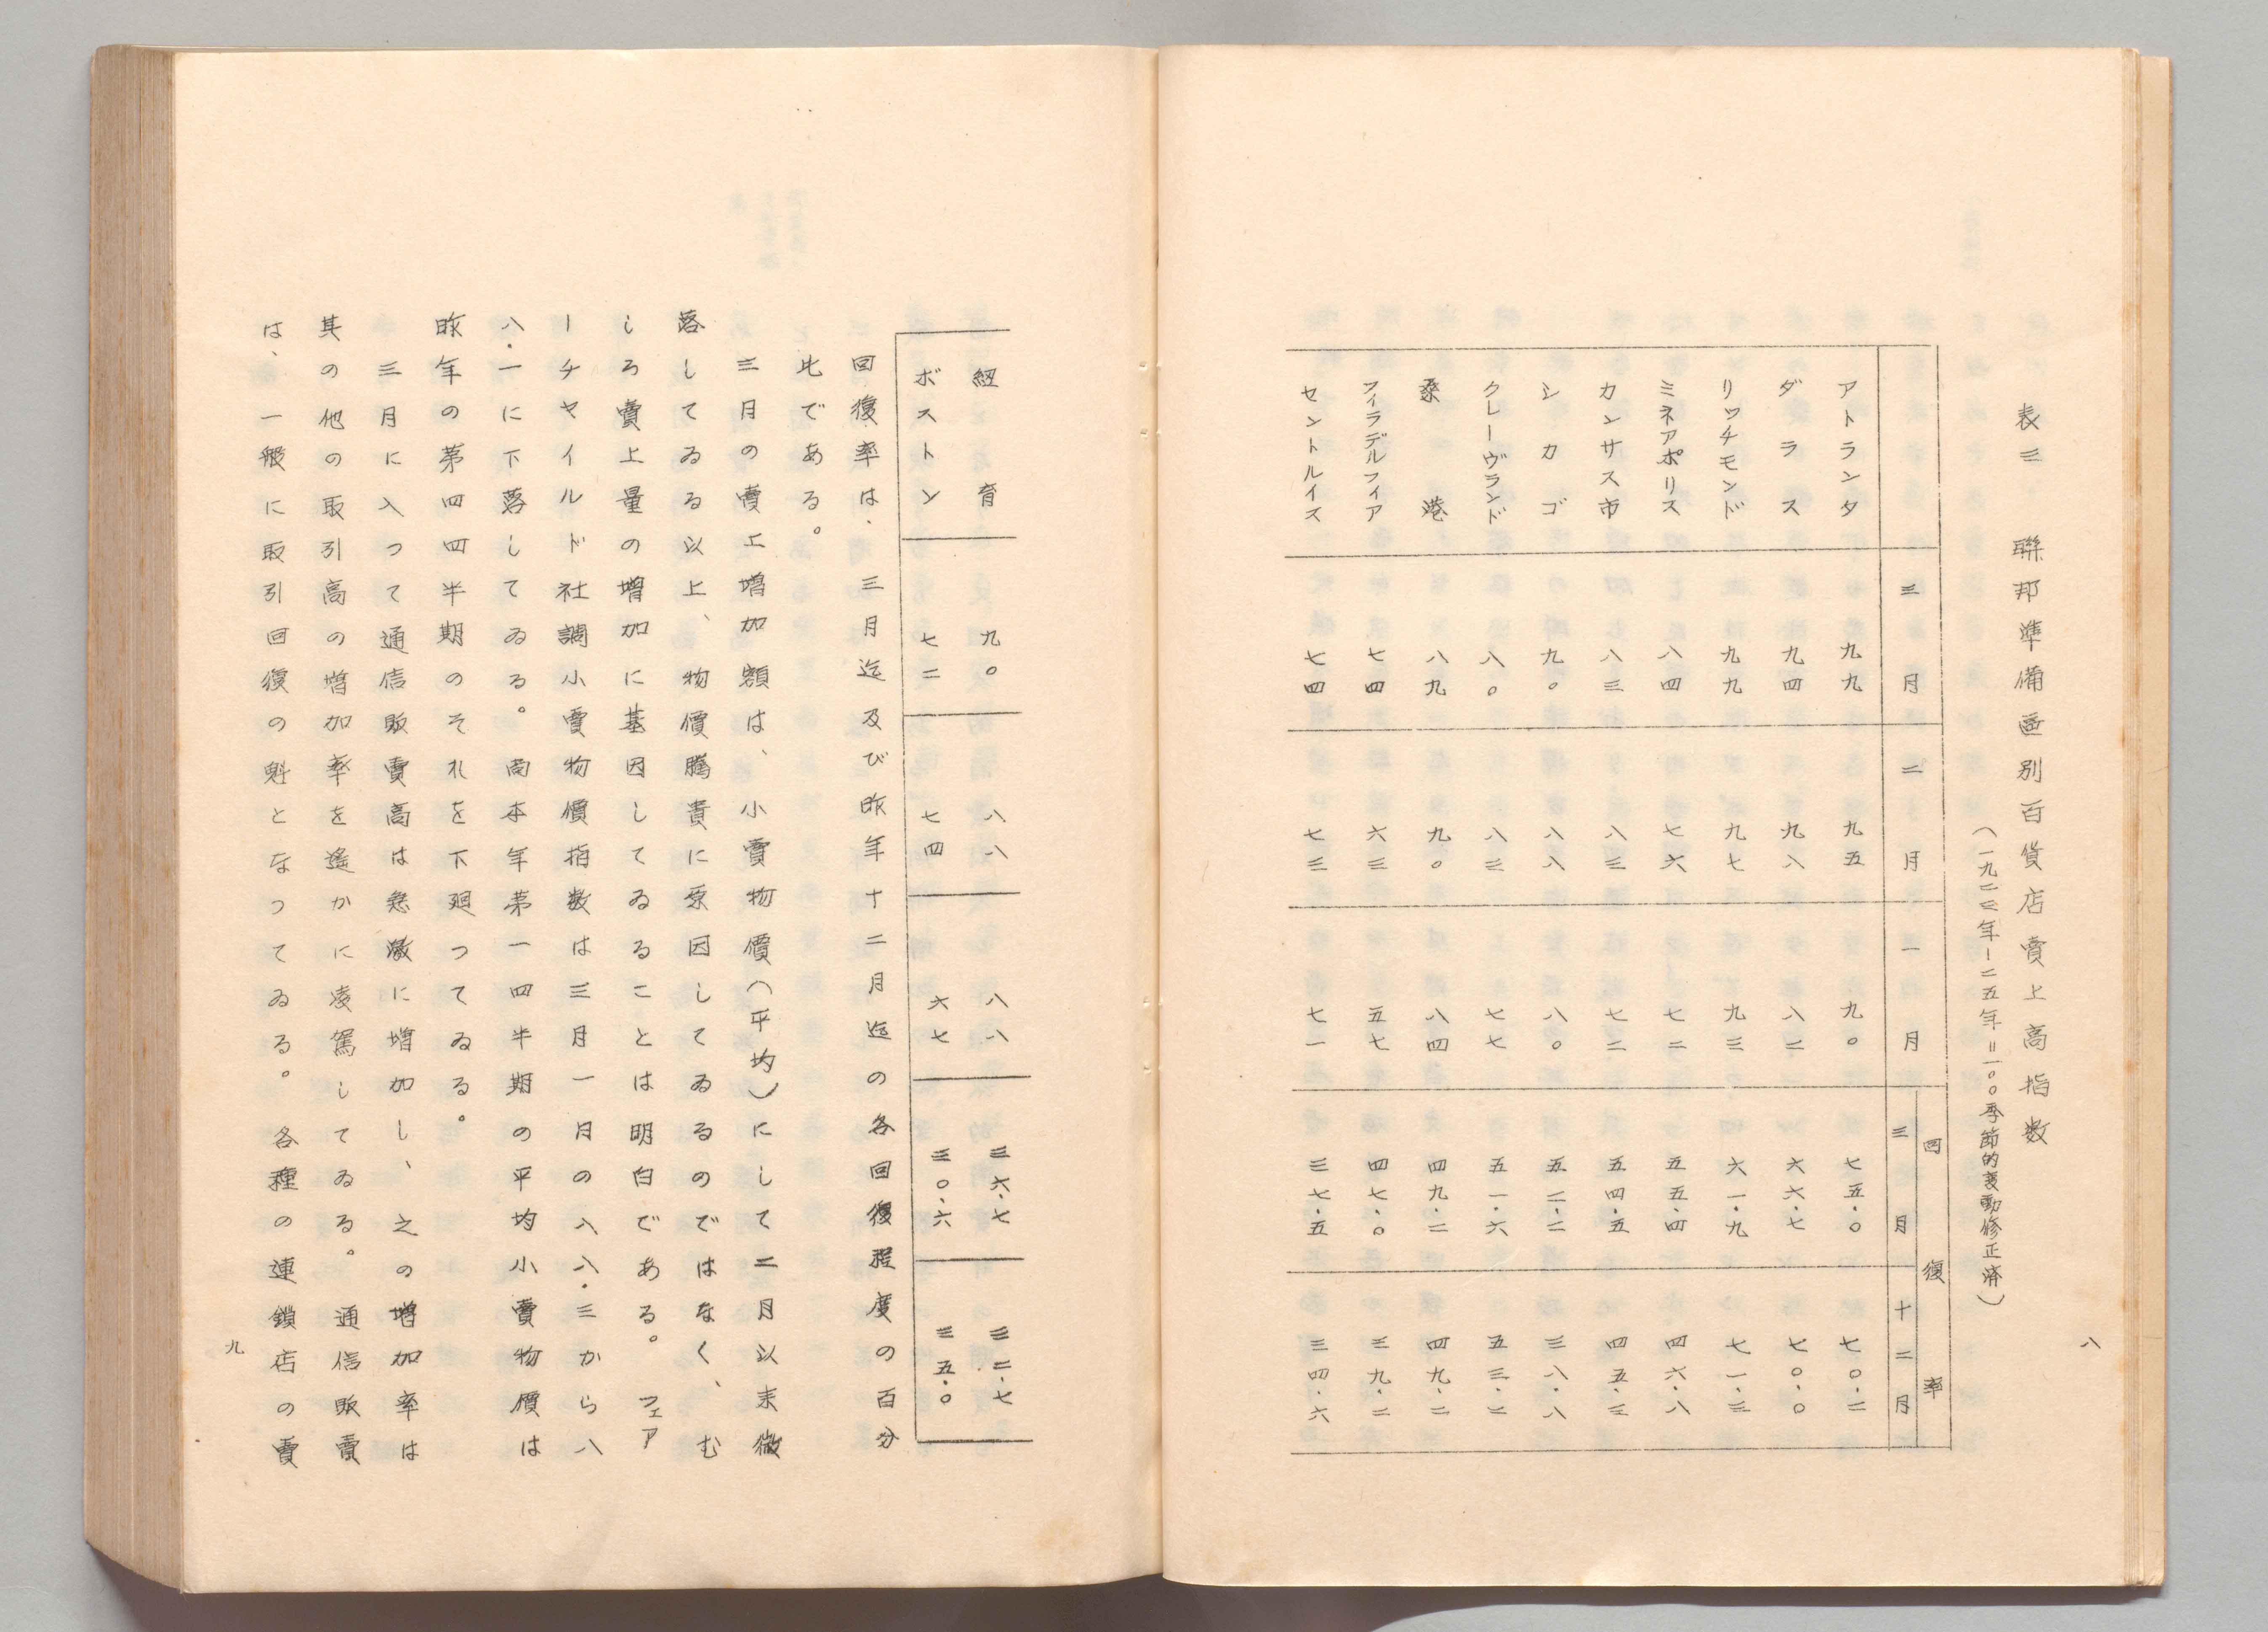 八
表三　聯邦準備区別百貨店賣上高指数
（一九二三年－二五年＝一〇〇季節的変動修正済）
三月　二月　一月　回復率　三月　十二月
アトランタ　九九　九五　九〇　七五・〇　七〇・二
ダラス　九四　九八　八二　六六・七　七〇・〇
リッチモンド　九九　九七　九三　六一・九　七一・三
ミネアポリス　八四　七六　七二　五五・四　四六・八
カンサス市　八三　八三　七二　五四・五　四五・三
シカゴ　九〇　八八　八〇　五二・二　三八・八
クレーヴランド　八〇　八三　七七　五一・六　五三・二
桑港　八九　九〇　八四　四九・二　四九・二
フィラデルフィア　七四　六三　五七　四七・〇　三九・二
セントルイス　七四　七三　七一　三七・五　三四・六
紐育　九〇　八八　八八　三六・七　三二・七
ボストン　七二　七四　六七　三〇・六　三五・〇
回復率は、三月迄及び昨年十二月迄の各回復程度の百分
比である。
三月の賣上増加額は、小賣物價（平均）にして二月以来微
落してゐる以上、物價騰貴に原因してゐるのではなく、む
しろ賣上量の増加に基因してゐることは明白である。フェア
ーチヤイルド社調小賣物價指数は三月一月の八八・三から八
八・一に下落してゐる。尚本年第一四半期の平均小賣物價は
昨年の第四四半期のそれを下廻つてゐる。
三月に入つて通信販賣高は急激に増加し、之の増加率は
其の他の取引高の増加率を遙かに凌駕してゐる。通信販賣
は、一般に取引回復の魁となつてゐる。各種の連鎖店の賣
九